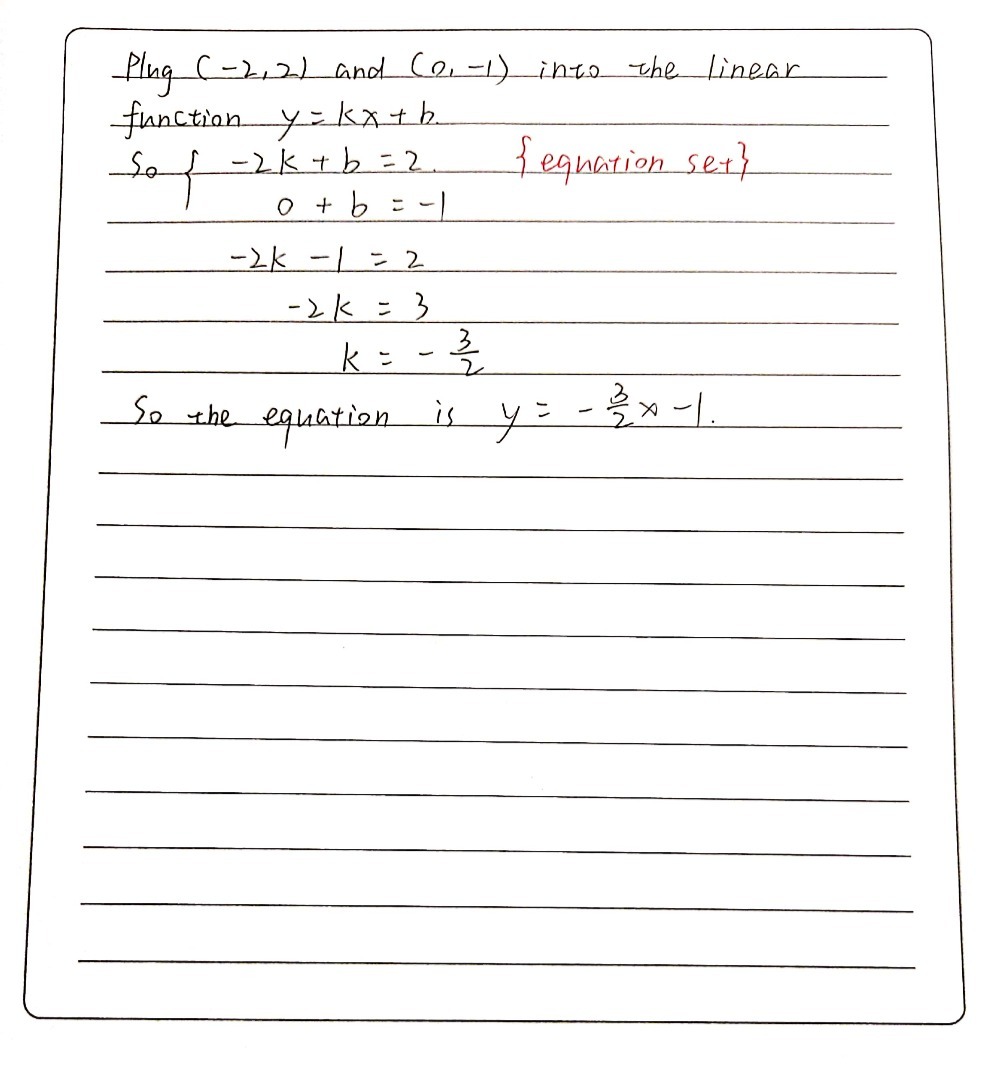 Plug (-2, 2) and (0, -1) into the linear
function y = kx + b.
So { -2k + b = 2. {equation set}
0 + b = -1
-2k - 1 = 2
-2k = 3
k = - 3/2
So the equation is y = - 3/2 x - 1.